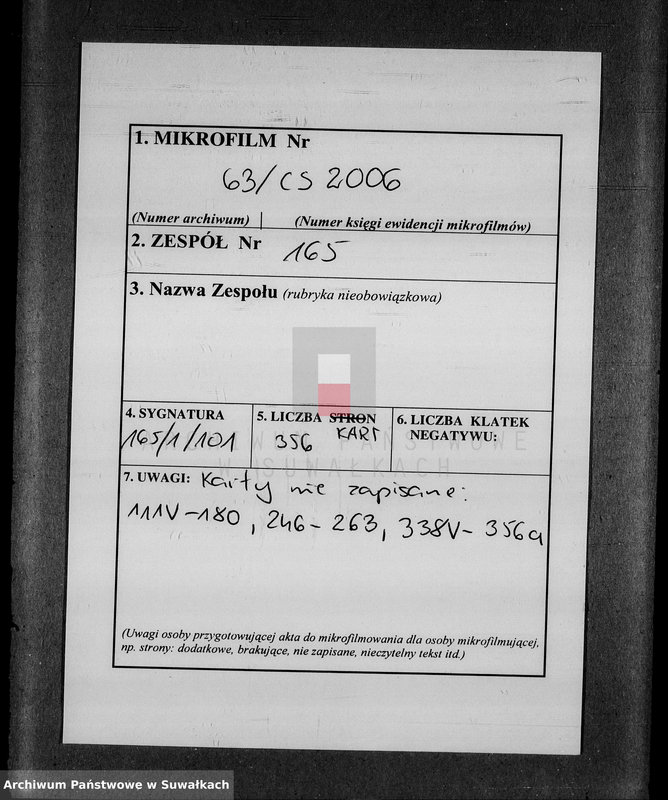 1. MIKROFILM Nr
63/CS 2006
(Numer archiwum) | (Numer księgi ewidencji mikrofilmów)
2. ZESPÓŁ Nr 165
3. Nazwa Zespołu (rubryka nieobowiązkowa)
4. SYGNATURA
165/1/101
5. LICZBA STRON
KART
356
6. LICZBA KLATEK
NEGATYWU:
ARCHIWUM PAŃSTWOWE
W SUWAŁKACH
7. UWAGI: Karty nie zapisane:
111V-180, 246-263, 338V-356a
(Uwagi osoby przygotowującej akta do mikrofilmowania dla osoby mikrofilmującej,
np. strony: dodatkowe, brakujące, nie zapisane, nieczytelny tekst itd.)
Archiwum Państwowe w Suwałkach